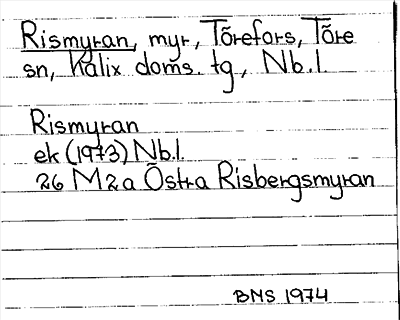 Rismyran, myr, Törefors, Töre
sn, Kalix doms. tg, Nb.l.
Rismyran
ek (1973) Nb.l.
26 M 2a Östra Risbergsmyran
BNS 1974